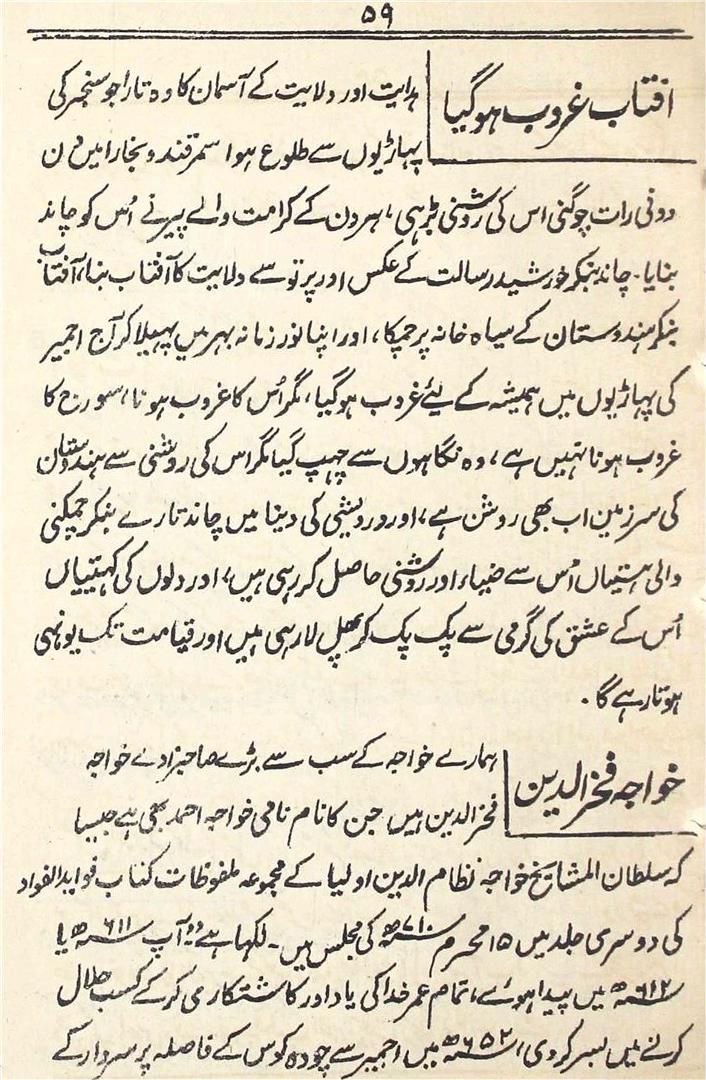 ۵۹
افتاب غروب ہوگیا
ہدایت اور ولایت کے آسمان کا وہ تارا جو سنجر کی
پہاڑیوں سے طلوع ہوا سمرقند و بخارا میں دن
دونی رات چوگنی اس کی روشنی بڑہی، ہرون کے کرامت والے پیر نے اُس کو چاند
بنایا۔ چاند بنکر خورشید رسالت کے عکس اور پرتو سے ولایت کا آفتاب بنا، آفتاب
بنکر ہندوستان کے سیاہ خانہ پر چمکا، اور اپنا نور زمانہ بہر میں پہیلا کر آج اجمیر
کی پہاڑیوں میں ہمیشہ کے لیئے غروب ہوگیا، مگر اُس کا غروب ہونا، سورج کا
غروب ہونا نہیں ہے، وہ نگاہوں سے چہپ گیا مگر اس کی روشنی سے ہندوستان
کی سرزمین اب بھی روشن ہے، اور درویشی کی دینا میں چاند تارے بنکر چمکنی
والی ہستیاں اُس سے ضیاء اور روشنی حاصل کر رہی ہیں، اور دلوں کی کہیتیاں
اُس کے عشق کی گرمی سے پک پک کر پھل لا رہی ہیں اور قیامت تک یونہی
ہوتا رہے گا۔
خواجہ فخر الدین
ہمارے خواجہ کے سب سے بڑے صاحبزادے خواجہ
فخر الدین ہیں جن کا نام نامی خواجہ احمد بھی ہے جیسا
کہ سلطان المشایخ خواجہ نظام الدین اولیا کے مجموعہ ملفوظات کتاب فوایدالفواد
کی دوسری جلد میں ۱۵ محرم ۷۱۰ھ کی مجلس میں۔ لکھا ہے آپ ۶۱۱ھ یا
۶۱۲ھ میں پیدا ہوئے، تمام عمر خدا کی یاد اور کاشتکاری کر کے کسب حلال
کرنے میں بسر کر دی، ۶۵۲ھ میں اجمیر سے چودہ کوس کے فاصلہ پر سردار کے